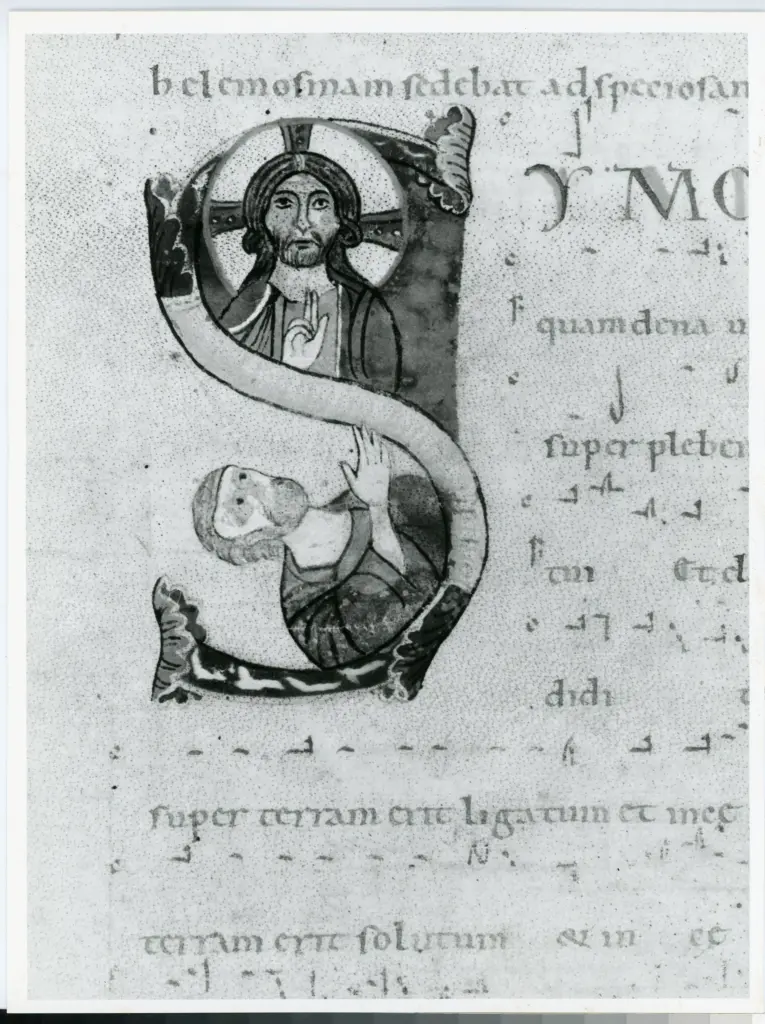 helemosinam sedebat ad speciosam
SYMO
quam dena
super plebem
tui Et
didi
super terram erit ligatum et in
terram erit solutum & in